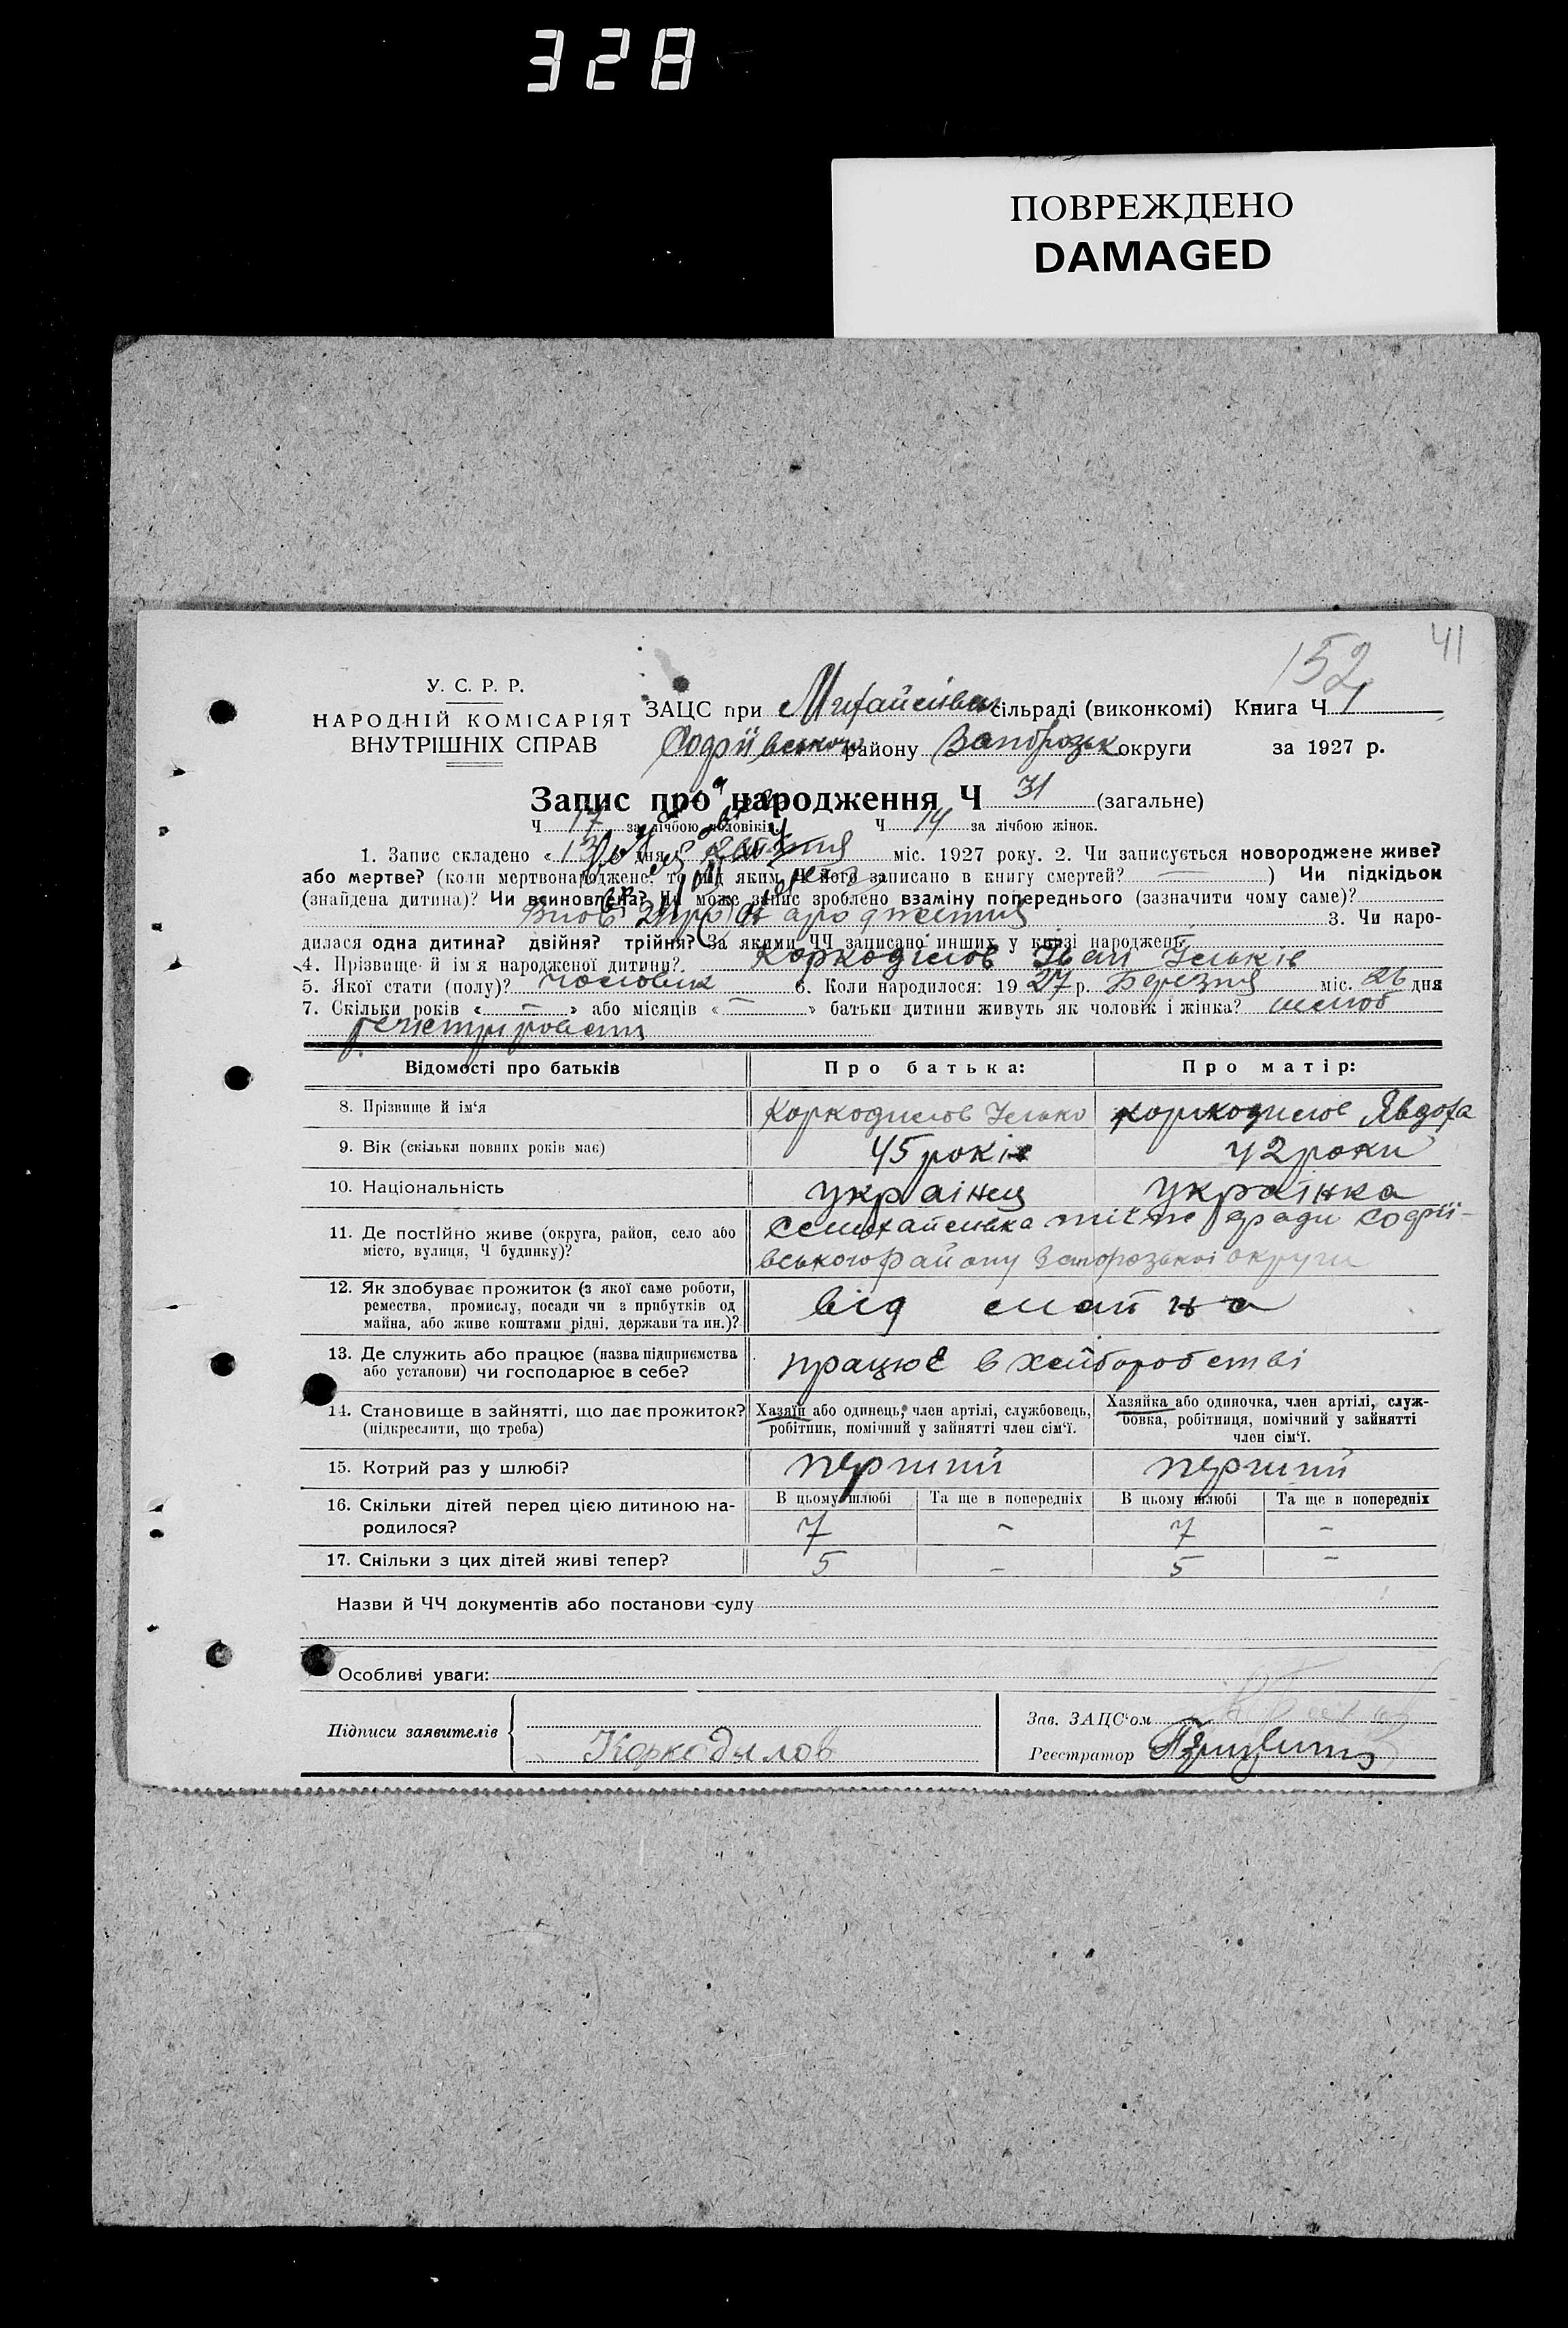 328
ПОВРЕЖДЕНО
DAMAGED
41
152
У. С. Р. Р.
НАРОДНІЙ КОМІСАРІЯТ
ВНУТРІШНІХ СПРАВ
ЗАЦС при Михайлівськ сільраді (виконкомі) Книга Ч 1
Софіївського району Запорозьк округи за 1927 р.
Запис про народження Ч 31 (загальне)
Ч 17 за лічбою чоловіків. Ч 14 за лічбою жінок.
1. Запис складено « 13 » дня міс. 1927 року. 2. Чи записується новороджене живе?
або мертве? (коли мертвонароджене, то під яким Ч його записано в книгу смертей? — ) Чи підкідьок
(знайдена дитина)? Чи всиновлена? Чи може запис зроблено взаміну попереднього (зазначити чому саме)?
народження 3. Чи наро-
дилася одна дитина? двійня? трійня? (За якими ЧЧ записано инших у книзі народжень
4. Прізвище й ім'я народженої дитини? Коркодилов Іван Ільків
5. Якої стати (полу)? чоловік 6. Коли народилося: 1927 р. Березня міс. 26 дня
7. Скільки років « — » або місяців « — » батьки дитини живуть як чоловік і жінка? шлюб
Відомості про батьків Про батька: Про матір:
8. Прізвище й ім'я Коркодилов Ілько Коркодилов Явдоха
9. Вік (скільки повних років має) 45 років 42 роки
10. Національність українец українка
11. Де постійно живе (округа, район, село або
місто, вулиця, Ч будинку)?
Михайлівка ради Софії-
вського району Запорозької округи
12. Як здобуває прожиток (з якої саме роботи,
ремества, промислу, посади чи з прибутків од
майна, або живе коштами рідні, держави та ин.)?
від майна
13. Де служить або працює (назва підприємства
або установи) чи господарює в себе?
працює в хліборобстві
14. Становище в зайнятті, що дає прожиток?
(підкреслити, що треба)
Хазяїн або одинець, член артілі, службовець,
робітник, помічний у зайнятті член сім'ї.
Хазяйка або одиночка, член артілі, служ-
бовка, робітниця, помічний у зайнятті
член сім'ї.
15. Котрий раз у шлюбі? перший перший
16. Скільки дітей перед цією дитиною на-
родилося?
В цьому шлюбі Та ще в попередніх В цьому шлюбі Та ще в попередніх
7 – 7 –
17. Скільки з цих дітей живі тепер? 5 – 5 –
Назви й ЧЧ документів або постанови суду
Особливі уваги:
Підписи заявителів
Коркодилов
Зав. ЗАЦС'ом
Реєстратор